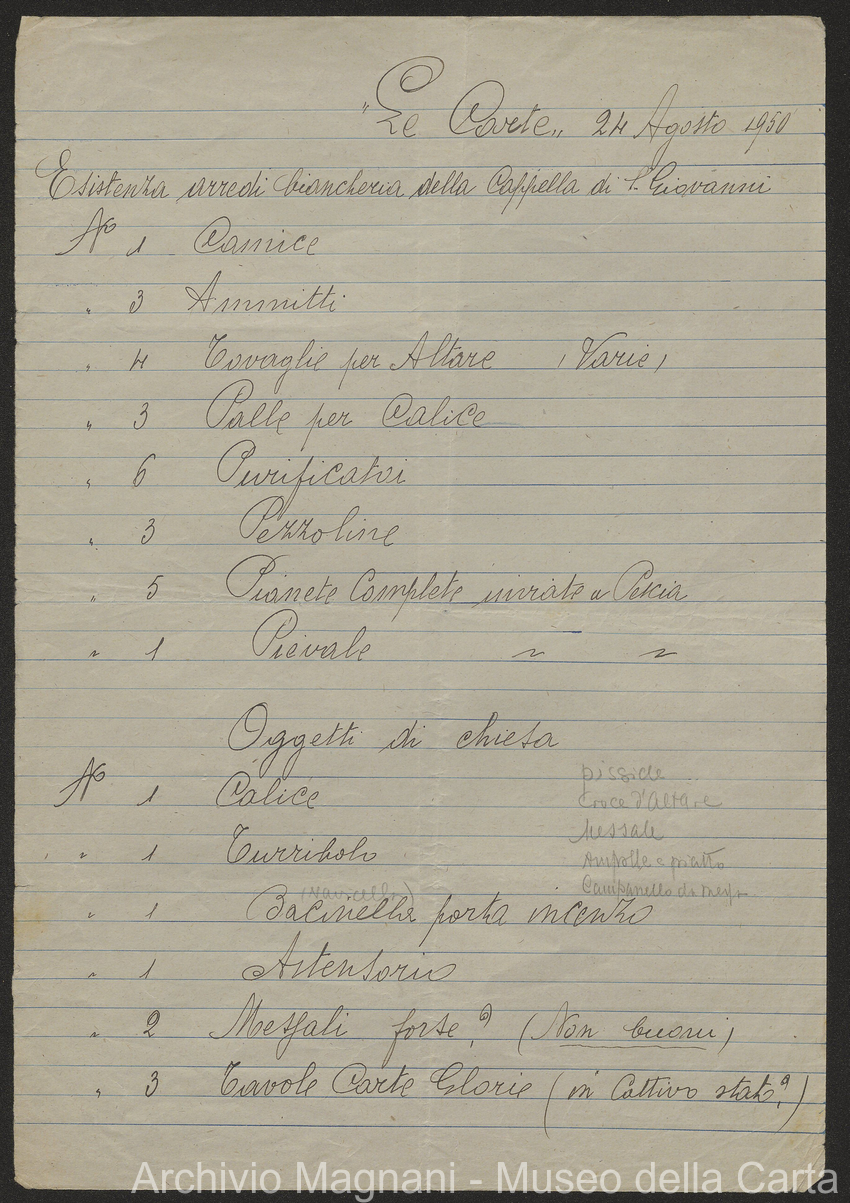 "Le Carte„ 24 Agosto 1950
Esistenza arredi biancheria della Cappella di S. Giovanni
No 1 Camice
" 3 Ammitti
" 4 Tovaglie per Altare (Varie)
" 3 Palle per Calice
" 6 Purificatoi
" 3 Pezzoline
" 5 Pianete Complete inviate a Pescia
" 1 Pievale " "
Oggetti di chiesa
No 1 Calice
pisside
Croce d'Altare
Messale
Ampolle e piatto
Campanello da messa
" 1 Turribolo
(navicella)
" 1 Bacinella porta incenzo
" 1 Astensorio
" 2 Messali forse? (Non buoni)
" 3 Tavole Carte Glorie (in Cattivo stato?)
Archivio Magnani - Museo della Carta